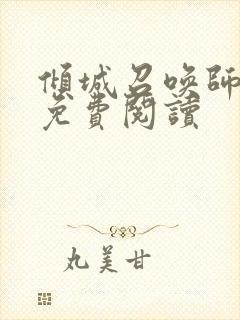 傾城召喚師
免費閱讀
丸美甘